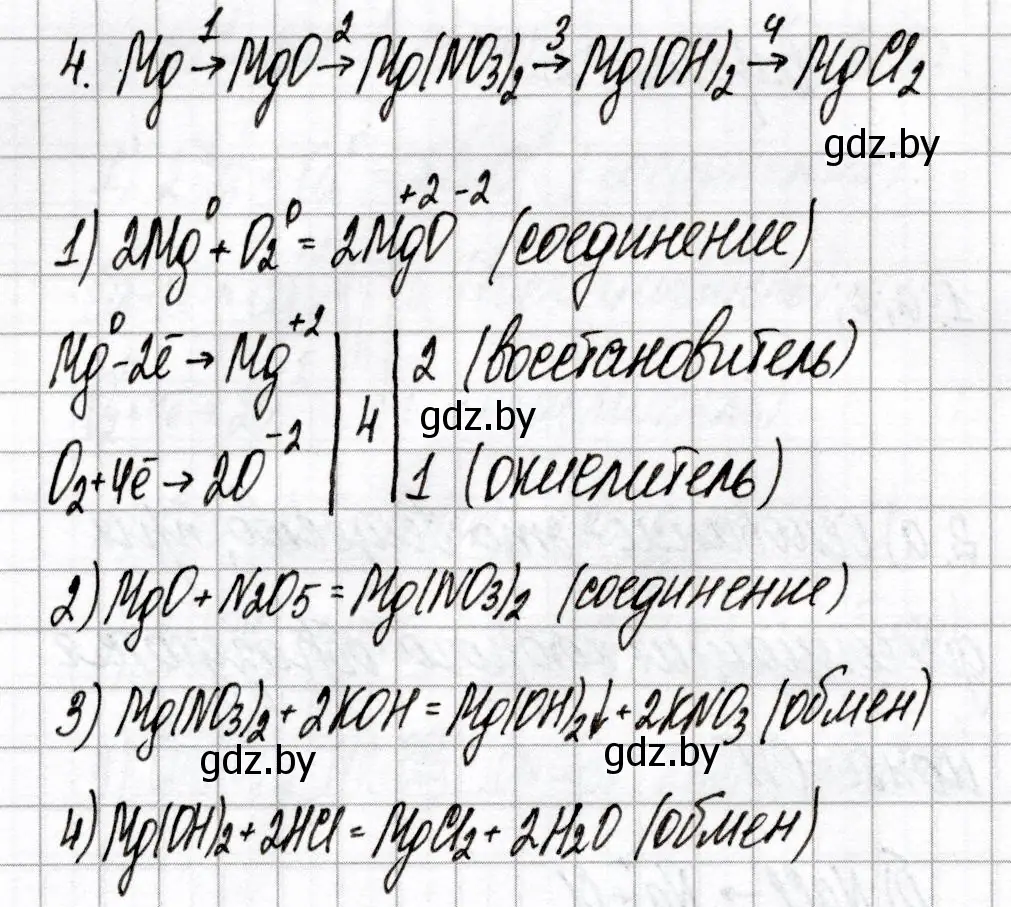 4. Mg →¹ MgO →² Mg(NO₃)₂ →³ Mg(OH)₂ →⁴ MgCl₂
gdz.by
1) 2Mg⁰ + O₂⁰ = 2Mg⁺²O⁻² (соединение)
Mg⁰ - 2ē → Mg⁺² | | 2 (восстановитель)
4 gdz.by
O₂ + 4ē → 2O⁻² | | 1 (окислитель)
2) MgO + N2O5 = Mg(NO₃)₂ (соединение)
3) Mg(NO₃)₂ + 2KOH = Mg(OH)₂↓ + 2KNO₃ (обмен)
gdz.by gdz.by
4) Mg(OH)₂ + 2HCl = MgCl₂ + 2H₂O (обмен)